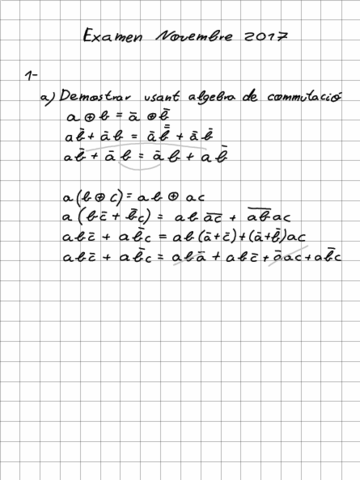 Examen Novembre 2017
1-
a) Demostrar usant algebra de commutació
a ⊕ b = ā ⊕ b̄
ab̄ + āb = āb̿ + a̿b̄
ab̄ + āb = āb + ab̄
a(b ⊕ c) = ab ⊕ ac
a(bc̄ + b̄c) = ab a̅c̅ + a̅b̅ ac
abc̄ + ab̄c = ab(ā + c̄) + (ā + b̄)ac
abc̄ + ab̄c = abā + abc̄ + āac + ab̄c